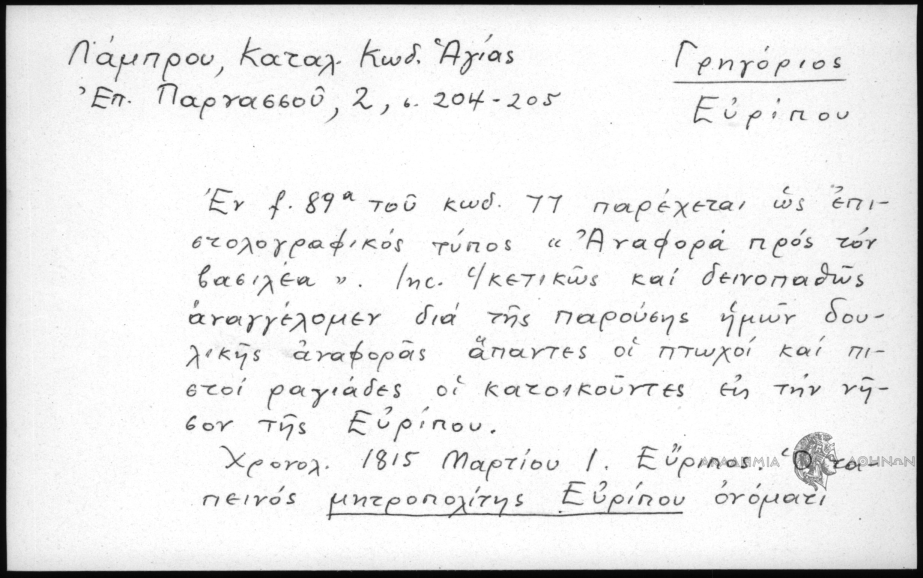 Λάμπρου, Καταλ. Κωδ. Ἁγίας
Γρηγόριος
Ἐπ. Παρνασσοῦ, 2, σ. 204-205
Εὐρίπου
Ἐν f. 89ᵃ τοῦ κωδ. 77 παρέχεται ὡς ἐπι-
στολογραφικός τύπος « Ἀναφορά πρός τόν
βασιλέα ». Inc. Ἱκετικῶς καί δεινοπαθῶς
ἀναγγέλομεν διά τῆς παρούσης ἡμῶν δου-
λικῆς ἀναφορᾶς ἅπαντες οἱ πτωχοί καί πι-
στοί ραγιάδες οἱ κατοικοῦντες εἰς τήν νῆ-
σον τῆς Εὐρίπου.
Χρονολ. 1815 Μαρτίου 1. Εὔριπος. Ὁ τα-
πεινός μητροπολίτης Εὐρίπου ὀνόματι
ΑΚΑΔΗΜΙΑ ΑΘΗΝΩΝ